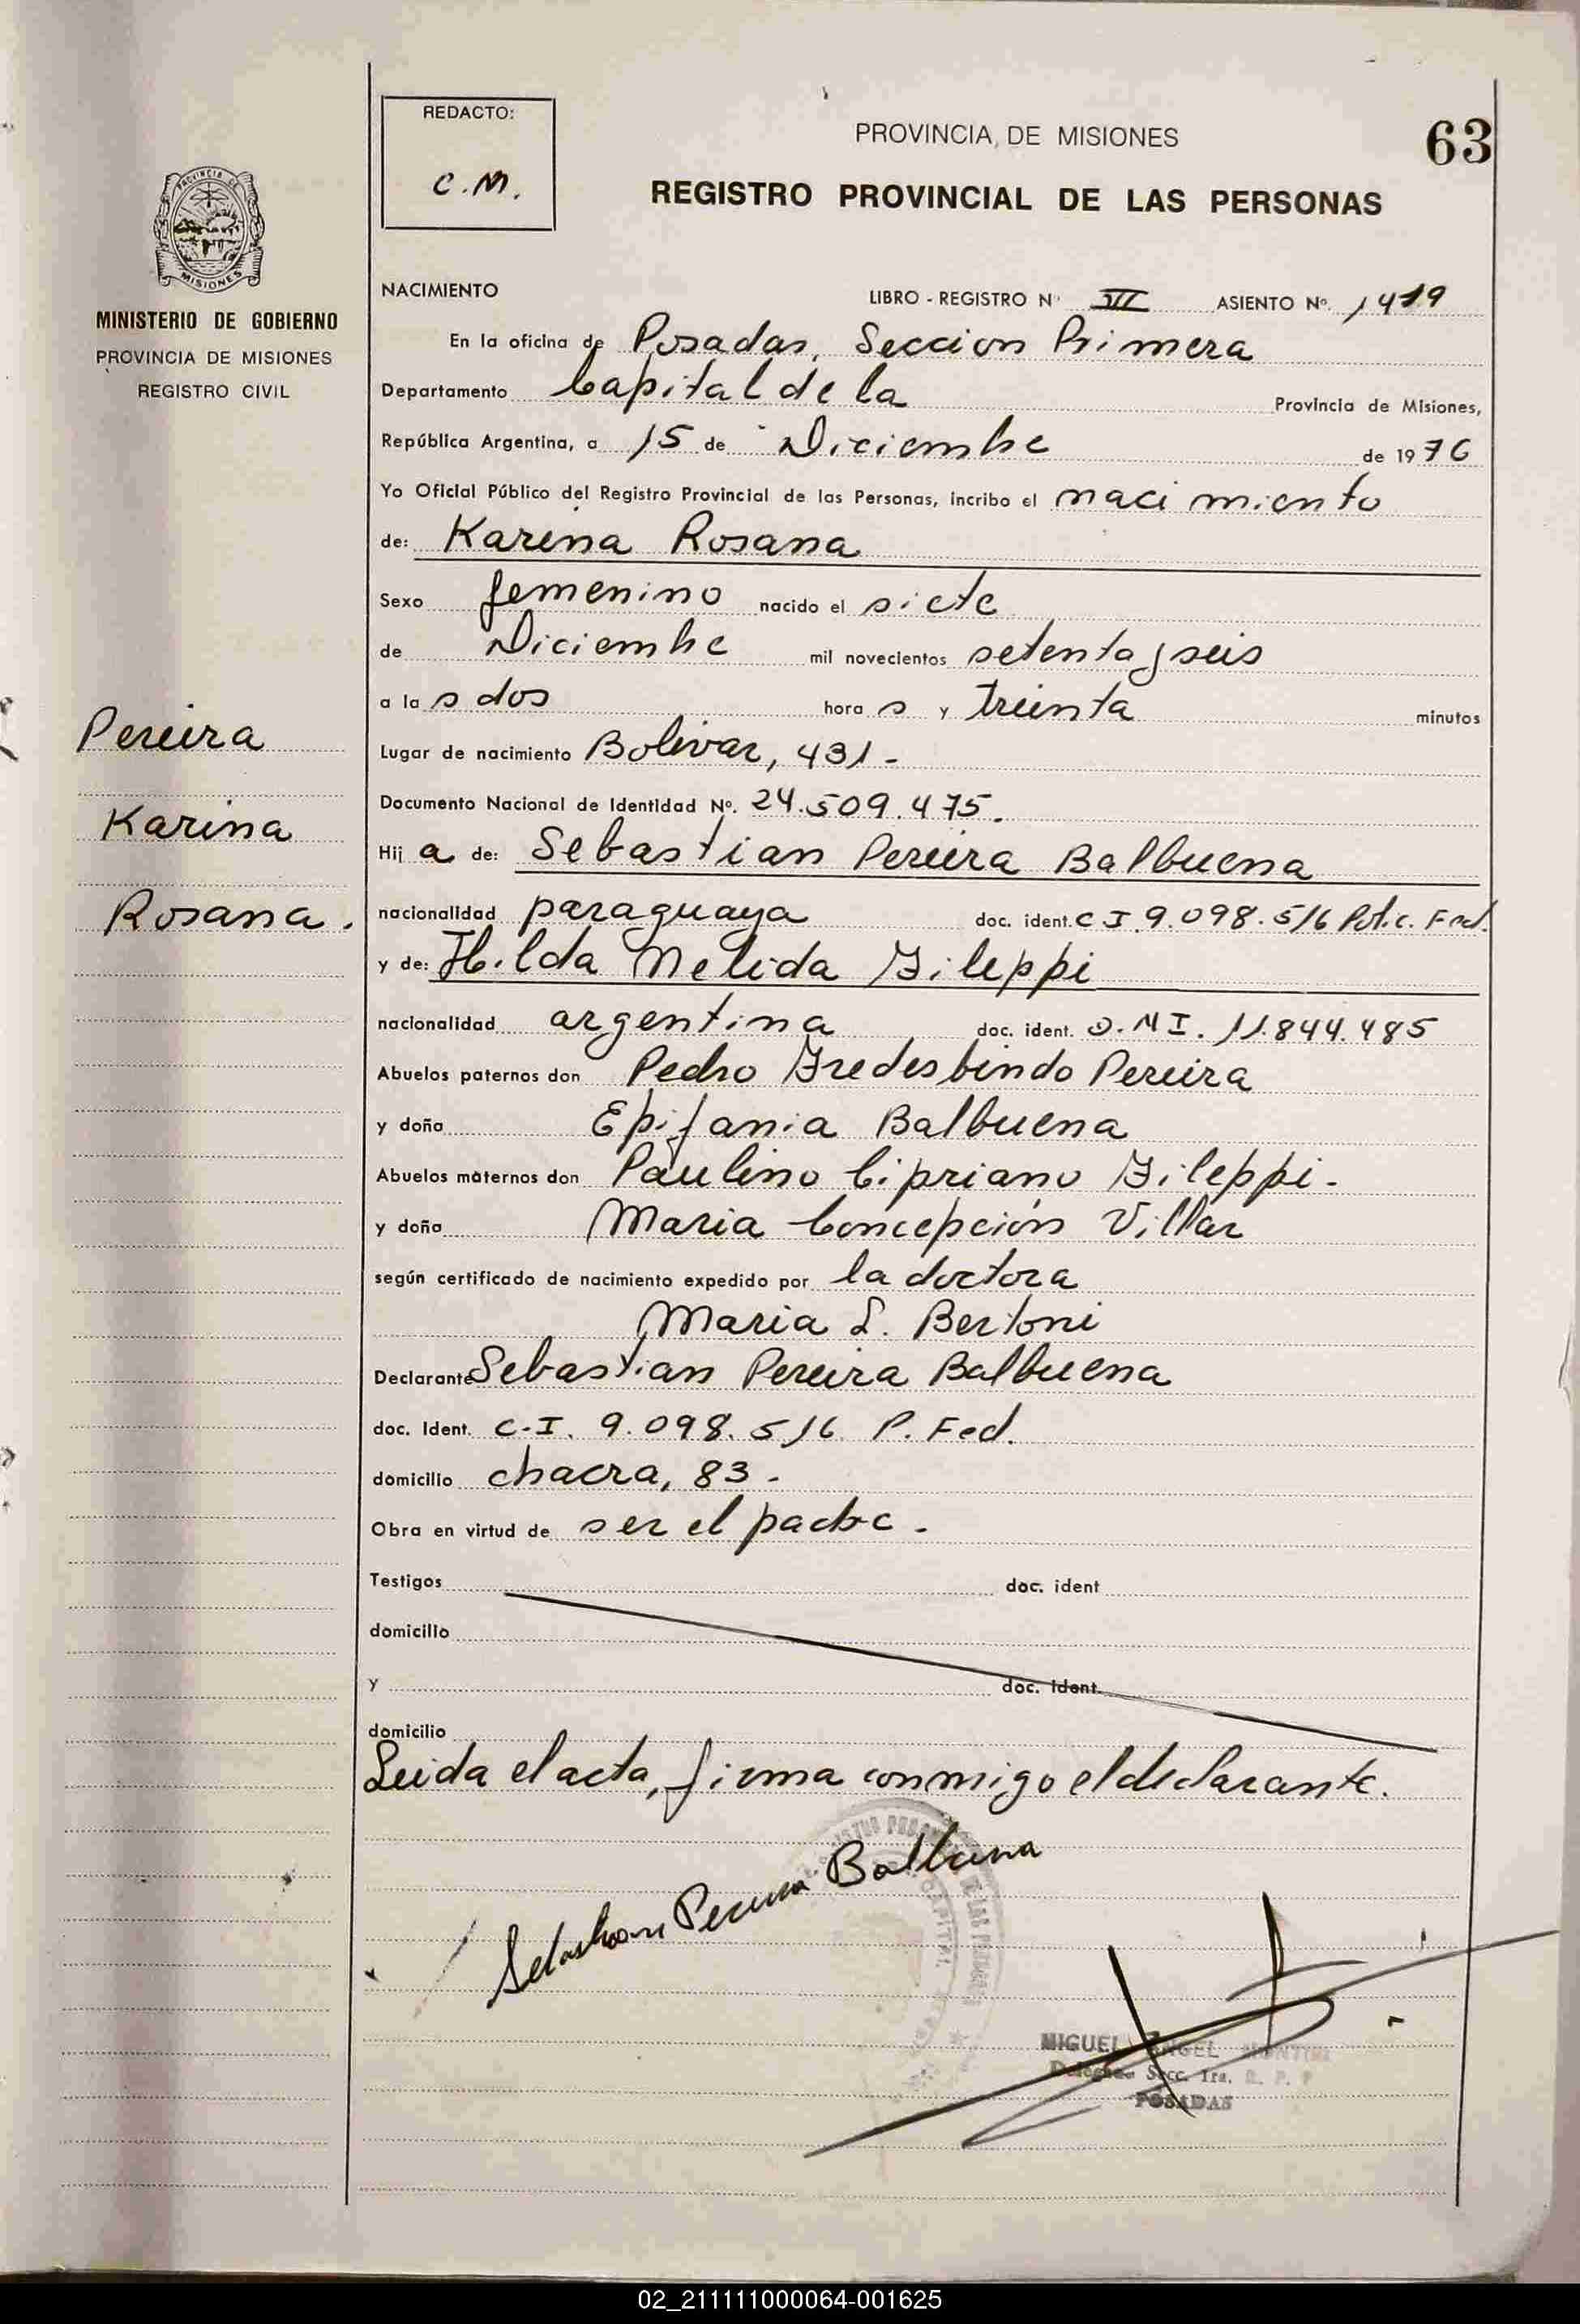 REDACTO:
C.M.
PROVINCIA DE MISIONES
63
REGISTRO PROVINCIAL DE LAS PERSONAS
PROVINCIA DE
MISIONES
MINISTERIO DE GOBIERNO
PROVINCIA DE MISIONES
REGISTRO CIVIL
NACIMIENTO LIBRO - REGISTRO Nº VII ASIENTO Nº. 1419
En la oficina de Posadas, Seccion Primera
Departamento Capital de la Provincia de Misiones,
República Argentina, a 15 de Diciembre de 1976
Yo Oficial Público del Registro Provincial de las Personas, incribo el nacimiento
de: Karina Rosana
Sexo femenino nacido el siete
de Diciembre mil novecientos setenta y seis
a las dos horas y treinta minutos
Lugar de nacimiento Bolivar, 431-
Documento Nacional de Identidad Nº. 24.509.475.
Hija de: Sebastian Pereira Balbuena
nacionalidad paraguaya doc. ident. C I 9.098.516 Polic. Fed.
y de: Hilda Nelida Gileppi
nacionalidad argentina doc. ident. D.N I. 11.844.485
Abuelos paternos don Pedro Gredesbindo Pereira
y doña Epifania Balbuena
Abuelos maternos don Paulino Cipriano Gileppi-
y doña Maria Concepción Villar
según certificado de nacimiento expedido por la doctora
Maria L. Bertoni
Declarante Sebastian Pereira Balbuena
doc. Ident. C-I. 9.098.516 P. Fed.
domicilio chacra, 83-
Obra en virtud de ser el padre-
Testigos doc. ident
domicilio
y doc. Ident.
domicilio
Leida el acta, firma conmigo el declarante.
Sebastian Pereira Balbuena
MIGUEL ANGEL
Delegado Secc. 1ra. R. P. P
POSADAS
Pereira
Karina
Rosana.
02_211111000064-001625